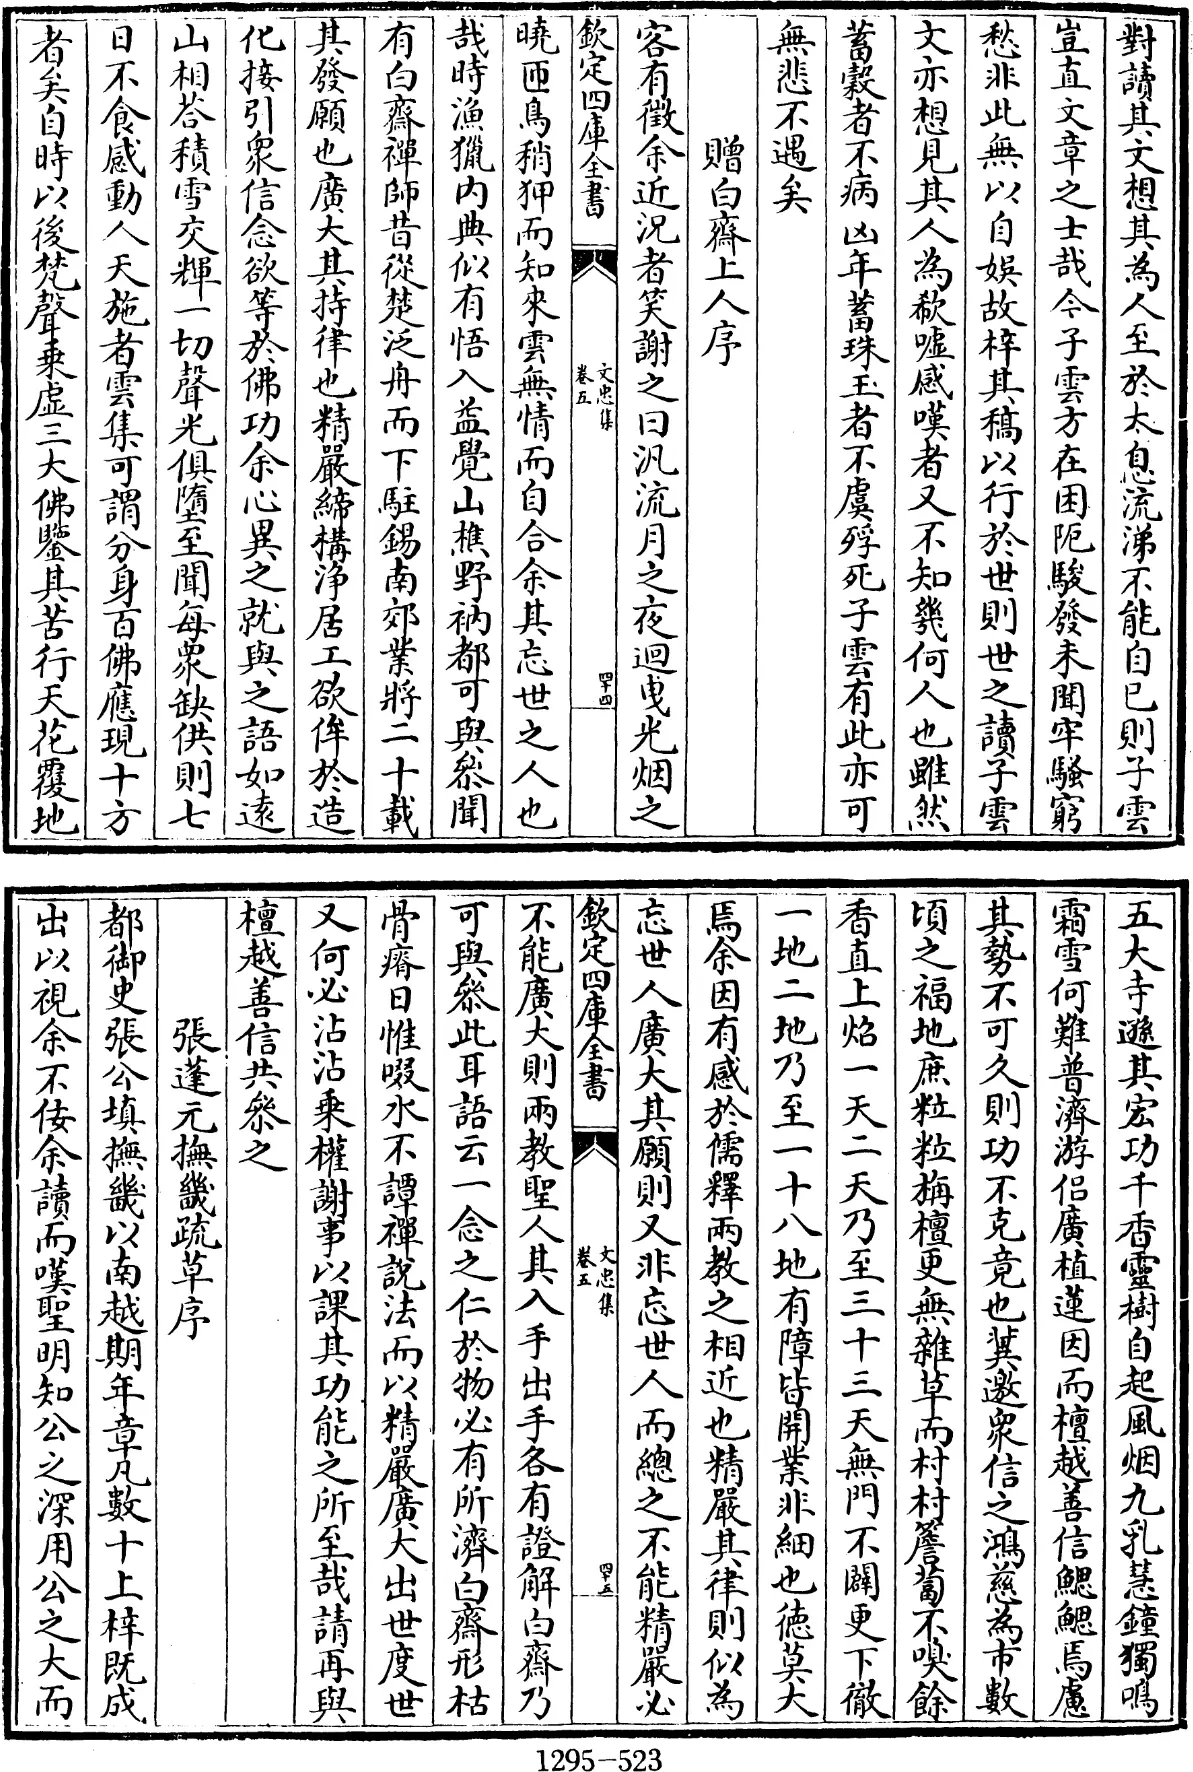 對讀其文想其為人至於太息流涕不能自已則子雲
豈直文章之士哉今子雲方在困阨駿發未聞牢騷窮
愁非此無以自娛故梓其稿以行於世則世之讀子雲
文亦想見其人為欷噓感嘆者又不知幾何人也雖然
蓄穀者不病凶年蓄珠玉者不虞殍死子雲有此亦可
無悲不遇矣
贈白齋上人序
客有徵余近況者笑謝之曰汎流月之夜迴曵光烟之
欽定四庫全書
文忠集
卷五
四十四
曉匝鳥稍狎而知來雲無情而自合余其忘世之人也
哉時漁獵内典似有悟入益覺山樵野衲都可與叅聞
有白齋禪師昔從楚泛舟而下駐錫南郊業將二十載
其發願也廣大其持律也精嚴締構淨居工欲侔於造
化接引衆信念欲等於佛功余心異之就與之語如遠
山相荅積雪交輝一切聲光俱墮至聞每衆缺供則七
日不食感動人天施者雲集可謂分身百佛應現十方
者矣自時以後梵聲乗虛三大佛鑒其苦行天花覆地
五大寺遜其宏功千香靈樹自起風烟九乳慧鐘獨鳴
霜雪何難普濟游侣廣植蓮因而檀越善信鰓鰓焉慮
其勢不可久則功不克竟也冀邀衆信之鴻慈為市數
頃之福地庶粒粒栴檀更無雜草而村村簷蔔不嗅餘
香直上焰一天二天乃至三十三天無門不闢更下徹
一地二地乃至一十八地有障皆開業非細也德莫大
焉余因有感於儒釋兩教之相近也精嚴其律則似為
忘世人廣大其願則又非忘世人而總之不能精嚴必
欽定四庫全書
文忠集
卷五
四十五
不能廣大則兩教聖人其入手出手各有證解白齋乃
可與叅此耳語云一念之仁於物必有所濟白齋形枯
骨瘠日惟啜水不譚禪說法而以精嚴廣大出世度世
又何必沾沾乗權謝事以課其功能之所至哉請再與
檀越善信共叅之
張蓬元撫畿疏草序
都御史張公填撫畿以南越期年章凡數十上梓既成
出以視余不佞余讀而嘆聖明知公之深用公之大而
1295-523